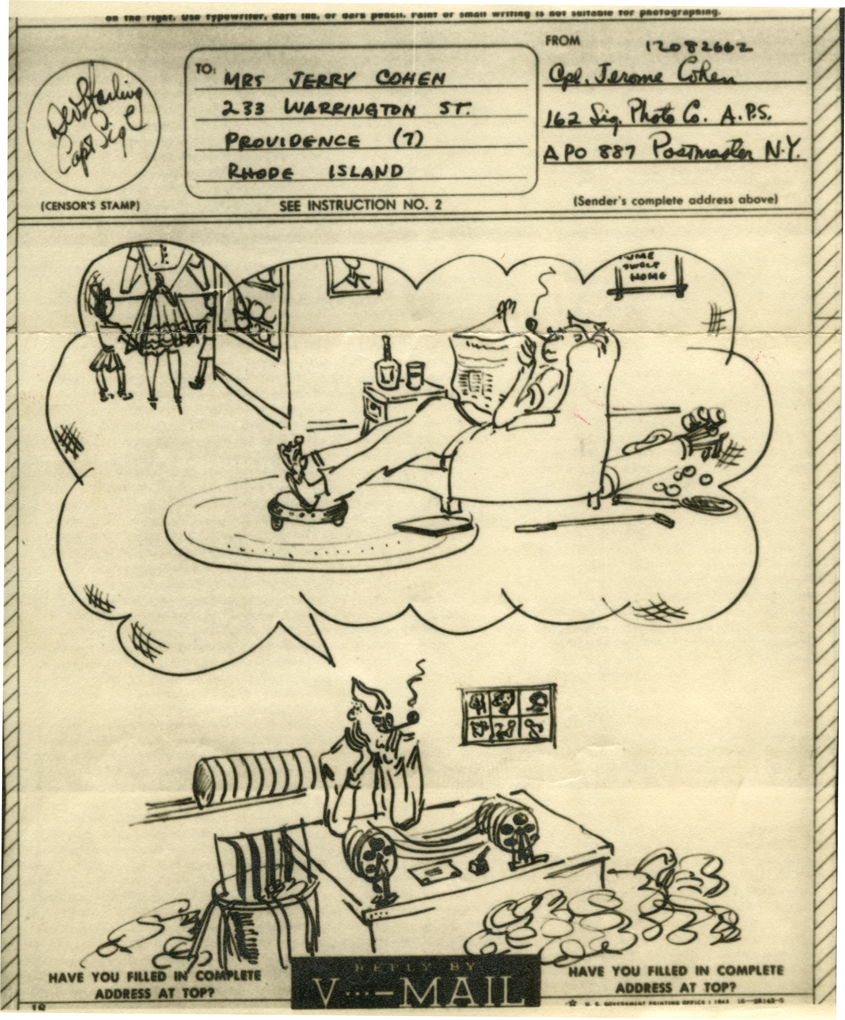 on the right. Use typewriter, dark ink, or dark pencil. Faint or small writing is not suitable for photographing.
TO:
MRS JERRY COHEN
233 WARRINGTON ST.
PROVIDENCE (7)
RHODE ISLAND
SEE INSTRUCTION NO. 2
FROM
12082662
Cpl. Jerome Cohen
162 Sig. Photo Co. A.P.S.
APO 887 Postmaster N.Y.
(Sender's complete address above)
Capt Sig C
(CENSOR'S STAMP)
HOME
SWEET
HOME
HAVE YOU FILLED IN COMPLETE
ADDRESS AT TOP?
REPLY BY
V···—MAIL
HAVE YOU FILLED IN COMPLETE
ADDRESS AT TOP?
U. S. GOVERNMENT PRINTING OFFICE : 1943